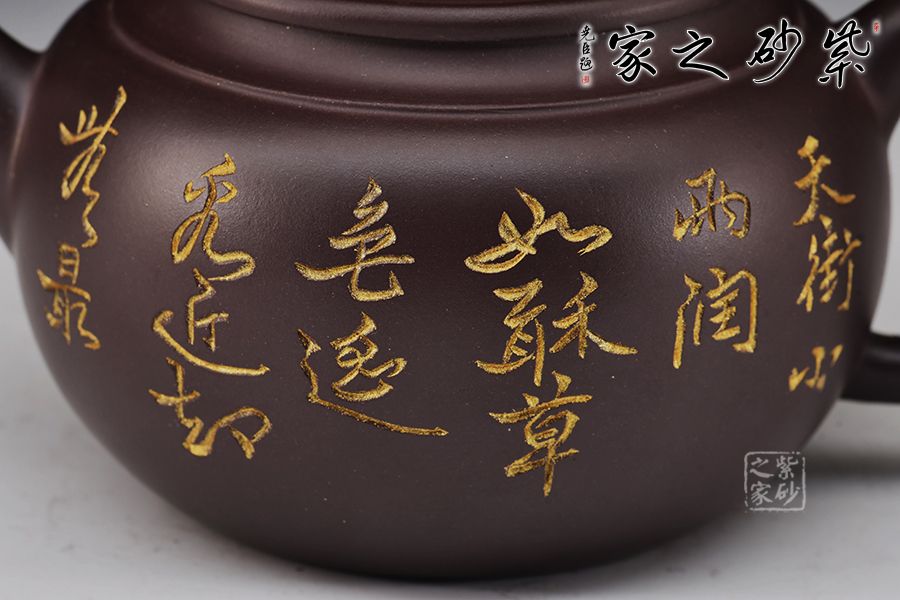 紫砂之家
尧臣题
天街小
雨润
如酥草
色遥
看近却
無最
紫砂之家